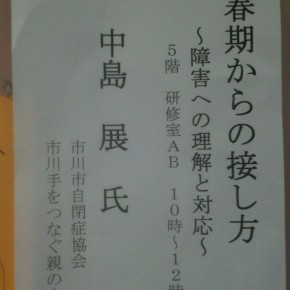 春期からの接し方
～障害への理解と対応～
5階 研修室AB 10時～12時
中島 展 氏
市川市自閉症協会
市川手をつなぐ親の